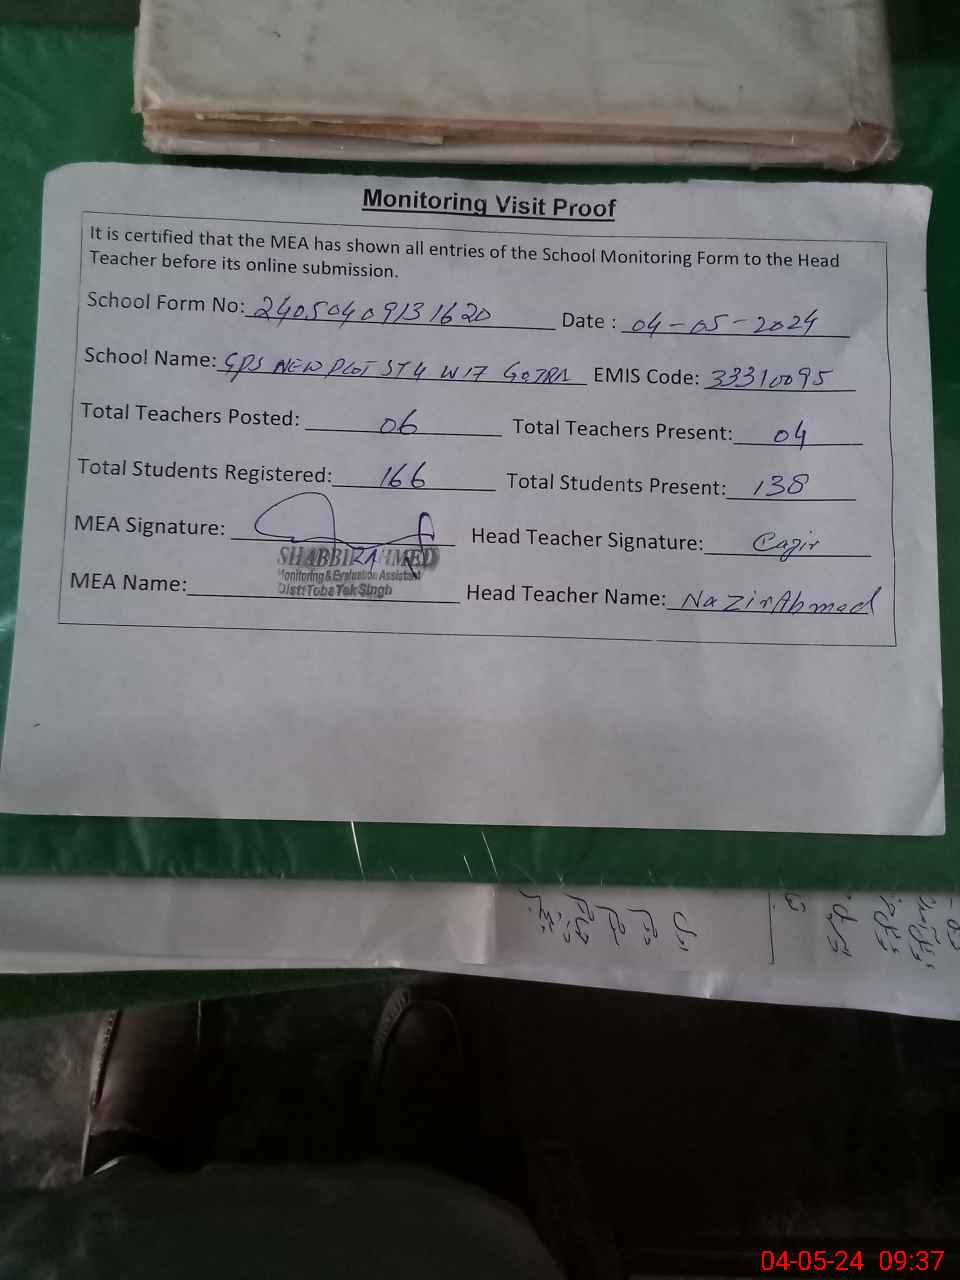 Monitoring Visit Proof
It is certified that the MEA has shown all entries of the School Monitoring Form to the Head
Teacher before its online submission.
School Form No: 24050409131620 Date : 04-05-2024
School Name: GPS NEW PLOT ST 4 W 17 GOJRA EMIS Code: 33310095
Total Teachers Posted: 06 Total Teachers Present: 04
Total Students Registered: 166 Total Students Present: 138
MEA Signature: Head Teacher Signature:
SHABBIR AHMED
Monitoring & Evaluation Assistant
Distt Toba Tek Singh
MEA Name: Head Teacher Name: Nazir Ahmed
04-05-24 09:37